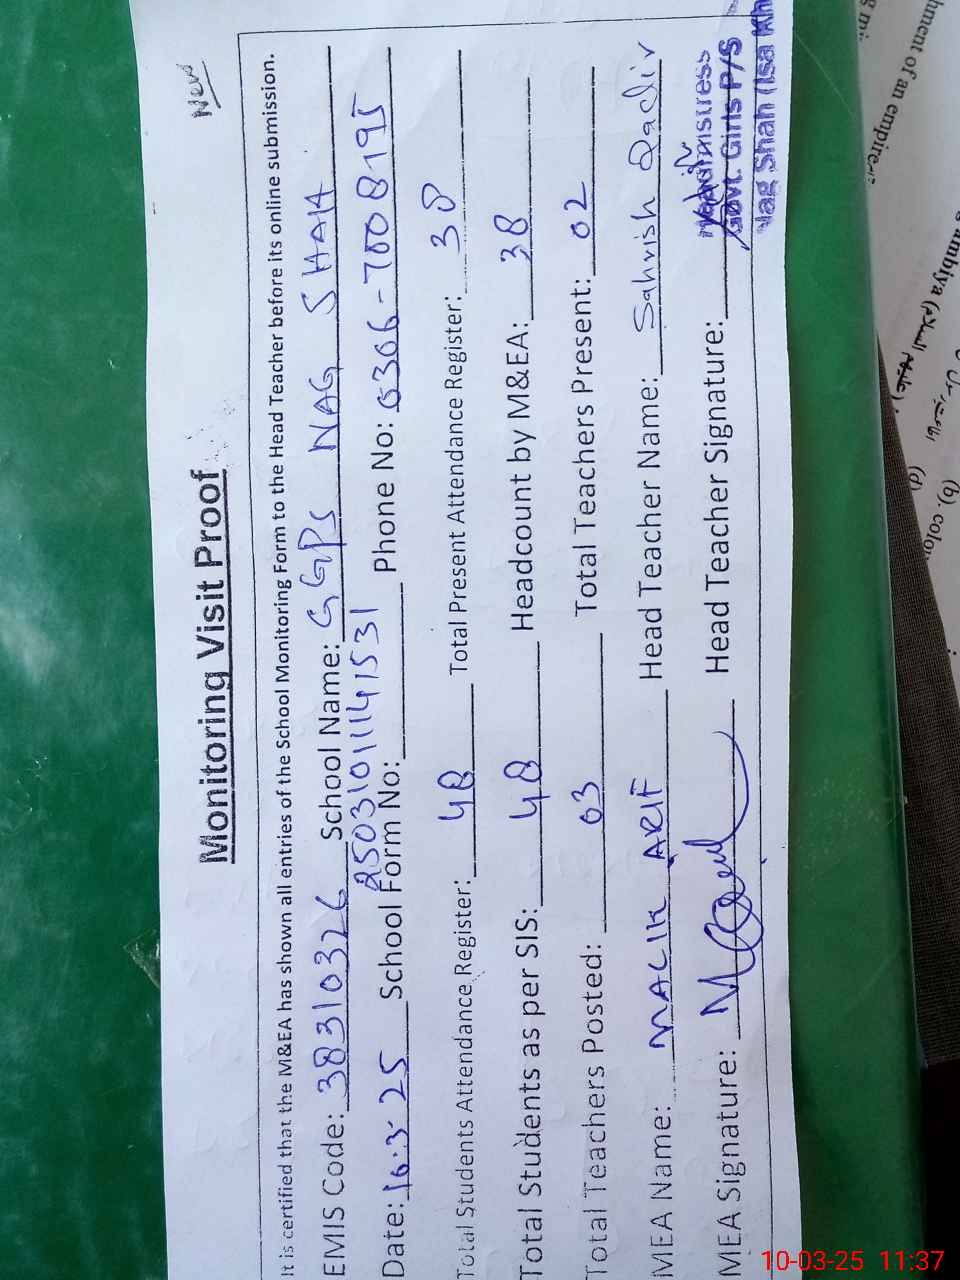 New
Monitoring Visit Proof
It is certified that the M&EA has shown all entries of the School Monitoring Form to the Head Teacher before its online submission.
EMIS Code: 38310326 School Name: GGPS NAG SHAH
25031011141531
Date: 10.3.25 School Form No: Phone No: 0306-7008195
Total Students Attendance Register: 48 Total Present Attendance Register: 38
Total Students as per SIS: 48 Headcount by M&EA: 38
Total Teachers Posted: 03 Total Teachers Present: 02
MEA Name: MALIK ARIF Head Teacher Name: Sahrish Qadir
MEA Signature: Head Teacher Signature:
Headmistress
Govt. Girls P/S
Nag Shah (Isa Kh
hment of an empire
ambiya (عليهم السلام)
(b). color
(d)
10-03-25 11:37